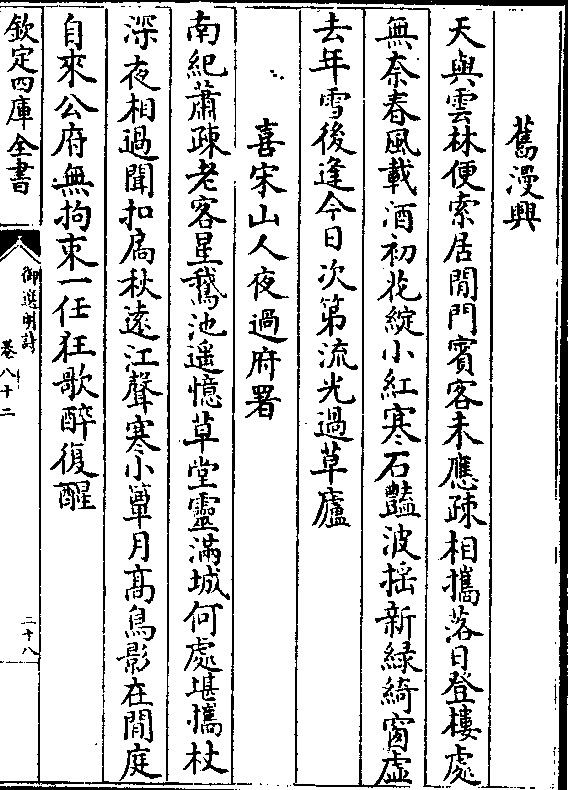 舊漫興
天與雲林便索居閒門賓客未應疎相攜落日登樓處
無奈春風載酒初花綻小紅寒石豔波揺新緑綺窗虛
去年雪後逢今日次第流光過草廬
喜宋山人夜過府署
南紀蕭疎老客星鵝池遥憶草堂靈滿城何處堪攜杖
深夜相過聞扣扄秋遠江聲寒小簟月髙鳥影在閒庭
自來公府無拘束一任狂歌醉復醒
欽定四庫全書
御選明詩
卷八十二
二十八